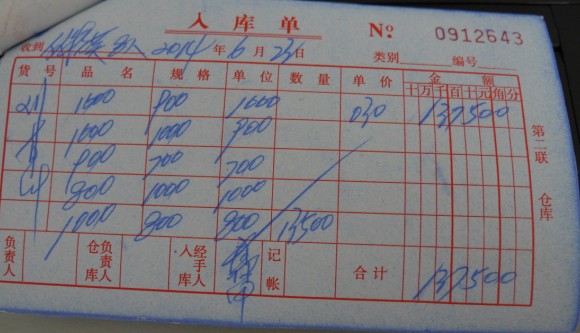 入库单 № 0912643
收到 2014年6月23日 类别 编号
货号 品名 规格 单位 数量 单价 金额
十万千百十元角分
1600 900 1000 030 137500
1000 1000 900
900 700 700
800 1000 1000
1000 800 800 13500
第二联 仓库
负责人 仓库负责人 经手人入库 记帐 合计 137500